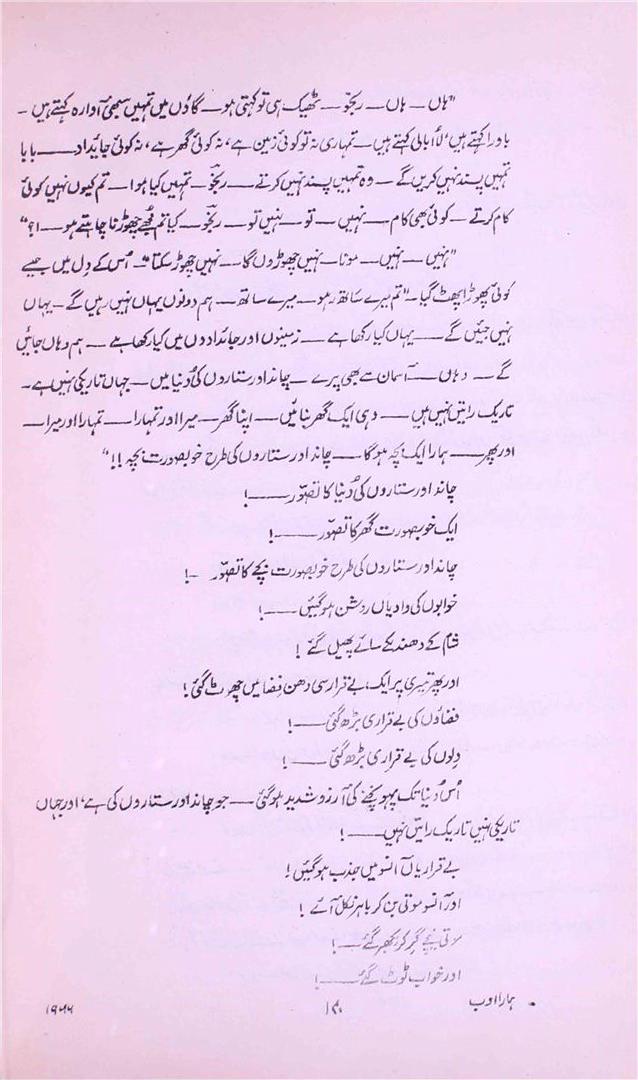 "ہاں — ہاں — رجّو — ٹھیک ہی تو کہتی ہو — گاؤں میں تمہیں سبھی آوارہ کہتے ہیں —
باورا کہتے ہیں، لاابالی کہتے ہیں — تمہاری نہ تو کوئی زمین ہے، نہ کوئی گھر ہے، نہ کوئی جائیداد — بابا
تمہیں پسند نہیں کریں گے — وہ تمہیں پسند نہیں کرتے — رجّو — تمہیں کیا ہوا — تم کیوں نہیں کوئی
کام کرتے — کوئی بھی کام — نہیں — تو — نہیں تو — رجّو — کیا تم مجھے چھوڑنا چاہتے ہو — ا؟"
"نہیں — نہیں — مونا — نہیں چھوڑوں گا — نہیں چھوڑ سکتا" — اُس کے دل میں جیسے
کوئی پھوڑا پھٹ گیا — "تم میرے ساتھ رہو — میرے ساتھ — ہم دونوں یہاں نہیں رہیں گے — یہاں
نہیں جئیں گے — یہاں کیا رکھا ہے — زمینوں اور جائدادوں میں کیا رکھا ہے — ہم وہاں جائیں
گے — وہاں — آسمان سے بھی پرے — چاند اور ستاروں کی دُنیا میں — جہاں تاریکی نہیں ہے —
تاریک راتیں نہیں ہیں — وہی ایک گھر بنائیں — اپنا گھر — میرا اور تمہارا — تمہارا اور میرا —
اور پھر — ہمارا ایک بچہ ہو گا — چاند اور ستاروں کی طرح خوبصورت بچہ !!"
چاند اور ستاروں کی دُنیا کا تصوّر — !
ایک خوبصورت گھر کا تصوّر — !
چاند اور ستاروں کی طرح خوبصورت بچے کا تصوّر — !
خوابوں کی وادیاں روشن ہو گئیں — !
شام کے دھندلکے سائے پھیل گئے !
اور پھر تیری پر ایک بے قرار سی دھن فضا میں چھوٹ گئی !
فضاؤں کی بے قراری بڑھ گئی — !
دِلوں کی بے قراری بڑھ گئی — !
اُس دُنیا تک پہونچنے کی آرزو شدید ہو گئی — جو چاند اور ستاروں کی ہے، اور جہاں
تاریکی نہیں تاریک راتیں نہیں — !
بے قراریاں آنسو میں جذب ہو گئیں !
اور آنسو موتی بن کر باہر نکل آئے !
موتی نیچے گر کر بکھر گئے — !
اور خواب ٹوٹ گئے — !
ہمارا ادب
۱۴۰
۱۹۶۶